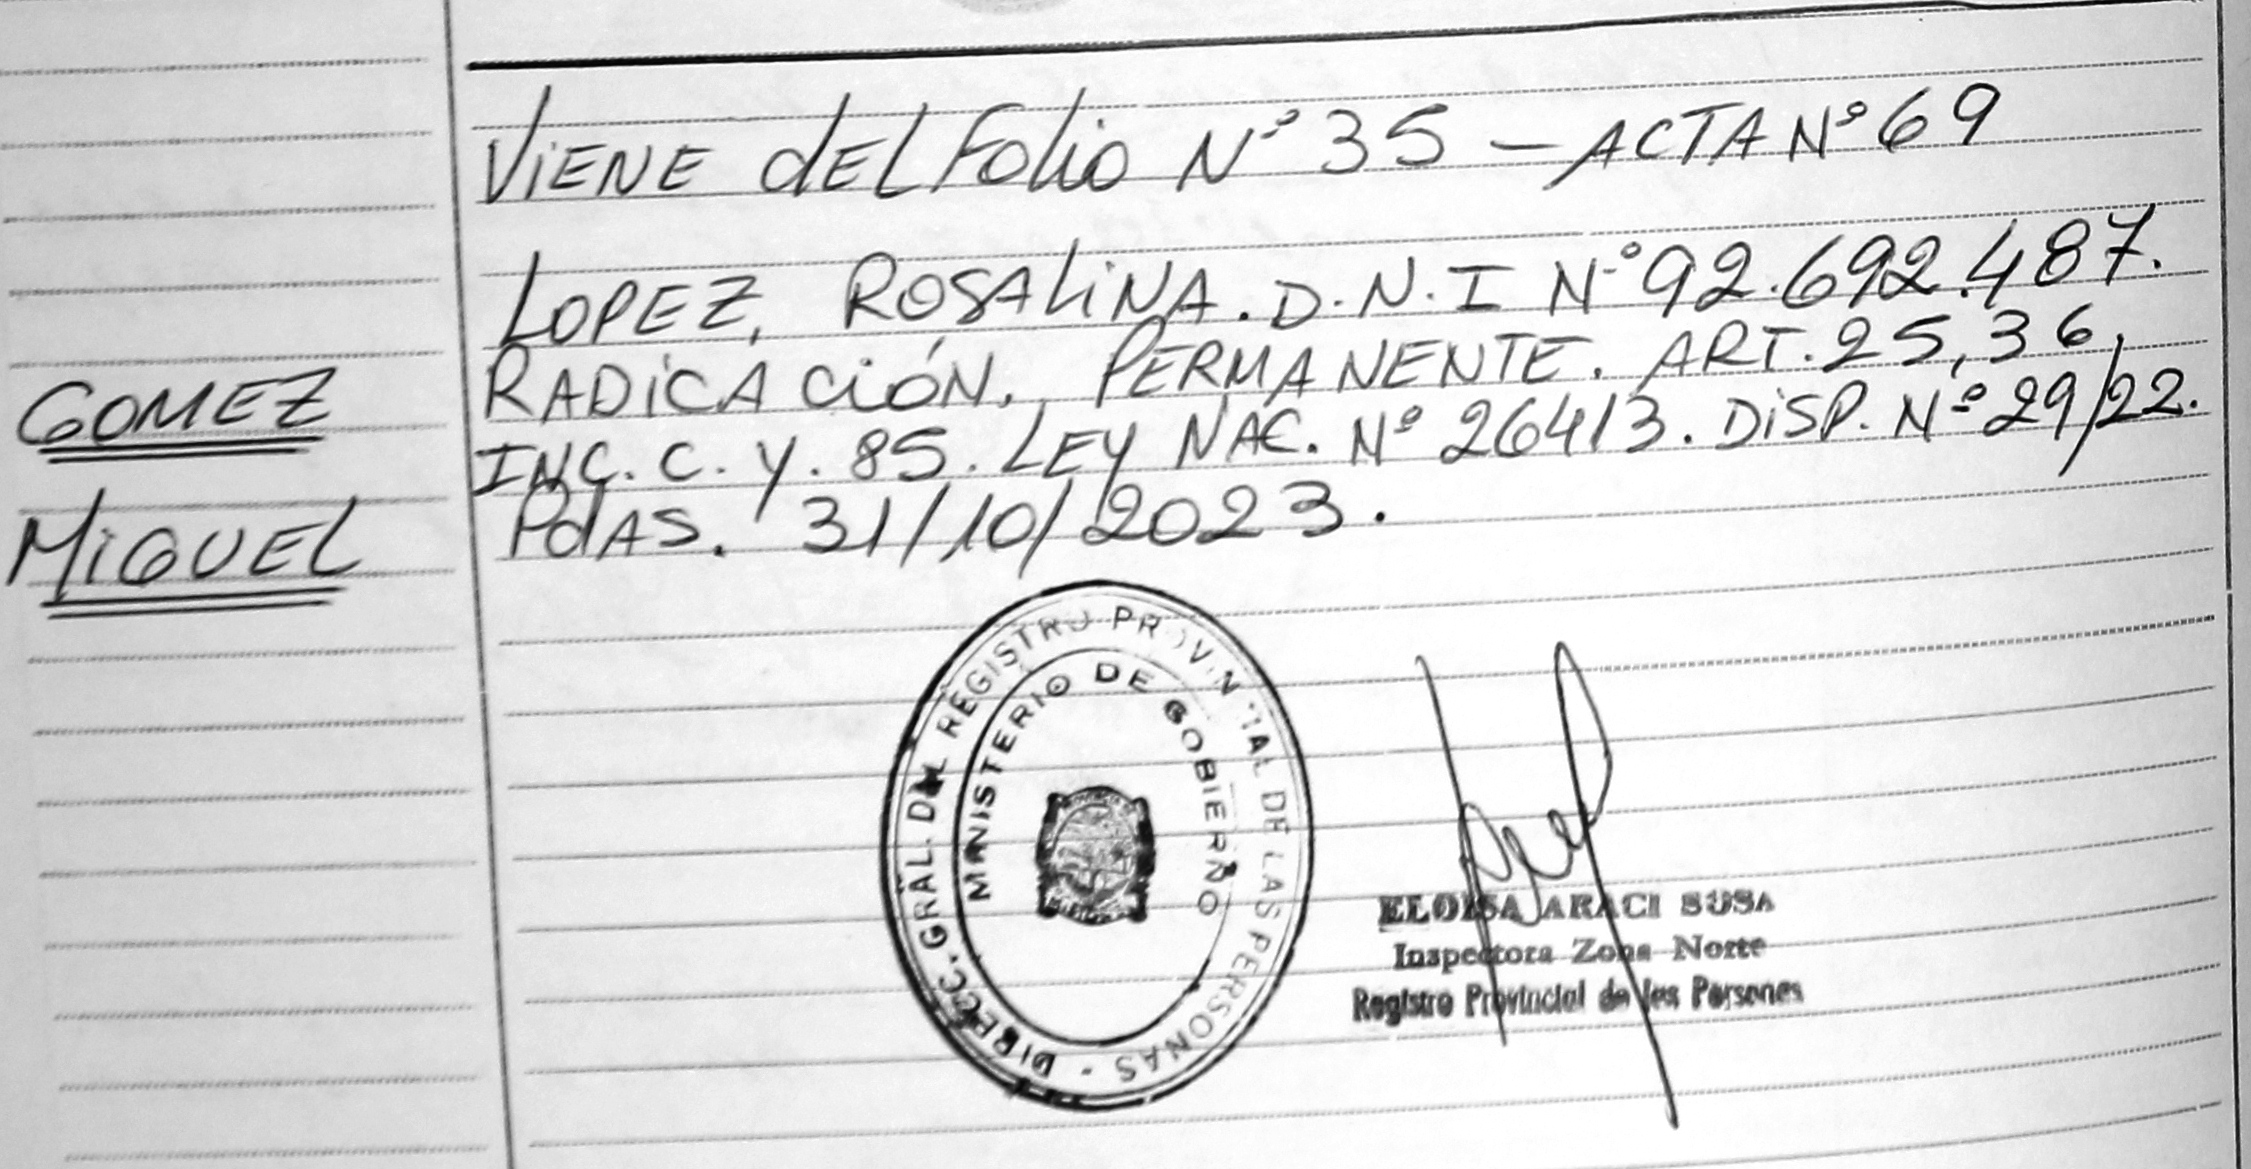 ViENE dEL Folio Nº 35 - ACTA Nº 69
LOPEZ, ROSALiNA. D.N.I Nº 92.692.487.
RADiCACiÓN. PERMANENTE. ART. 25, 36,
INC. C. Y. 85. LEY NAC. Nº 26413. DiSP. Nº 29/22.
PdAS. 31/10/2023.
GOMEZ
MiGUEL
DIRECC. GRAL. DEL REGISTRO PROVINCIAL DE LAS PERSONAS -
MINISTERIO DE GOBIERNO
ELOISA ARACI SUSA
Inspectora Zona Norte
Registro Provincial de las Personas